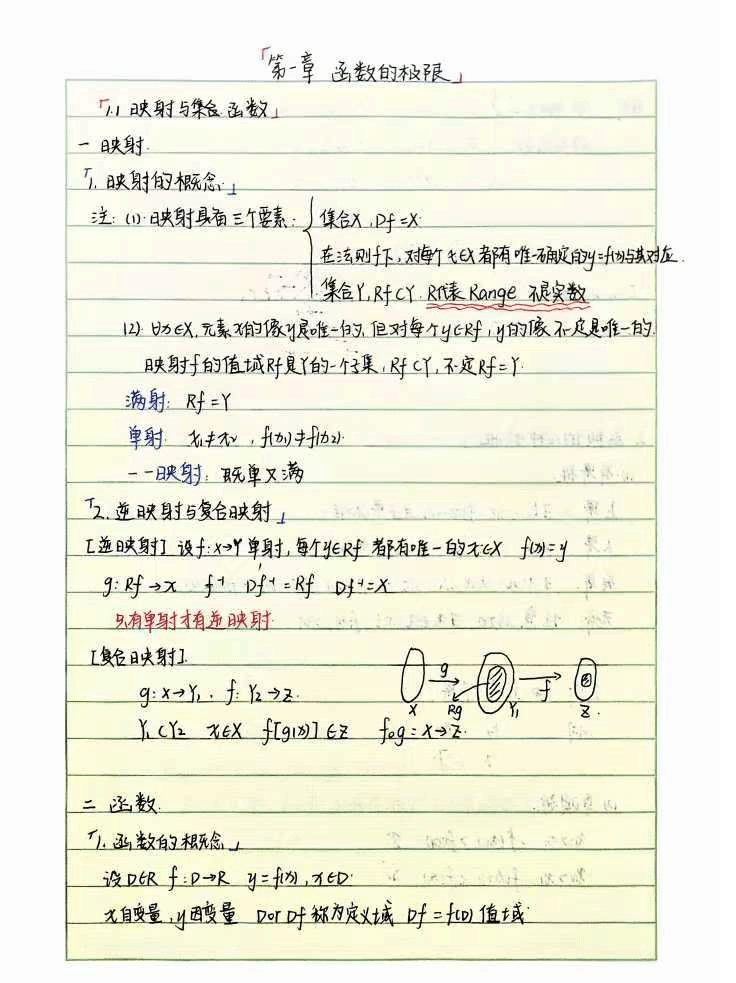 「第一章 函数的极限」
「1.1 映射与集合 函数」
一 映射.
「1. 映射的概念.」
注: (1). 映射具有三个要素: 集合X, Df=X.
在法则f下, 对每个x∈X 都有唯一确定的y=f(x)与其对应.
集合Y, Rf⊂Y. R代表 Range 不是实数
(2). ∀x∈X, 元素x的像y是唯一的, 但对每个y∈Rf, y的像不一定是唯一的.
映射f的值域Rf是Y的一个子集, Rf⊂Y, 不一定Rf=Y.
满射: Rf=Y
单射. x₁≠x₂, f(x₁)≠f(x₂).
一一映射: 既单又满
「2. 逆映射与复合映射」
[逆映射] 设f: X→Y 单射, 每个y∈Rf 都有唯一的x∈X f(x)=y
g: Rf→x f⁻¹ Df⁻¹=Rf Df⁻¹=X
只有单射才有逆映射.
[复合映射].
g: X→Y₁. f: Y₂→Z.
g f
X Rg Y₁ Z.
Y₁⊂Y₂ x∈X f[g(x)]∈Z f∘g=X→Z.
二 函数.
「1. 函数的概念」
设D∈R f: D→R y=f(x), x∈D.
x自变量, y因变量 D or Df 称为定义域 Df=f(D) 值域.